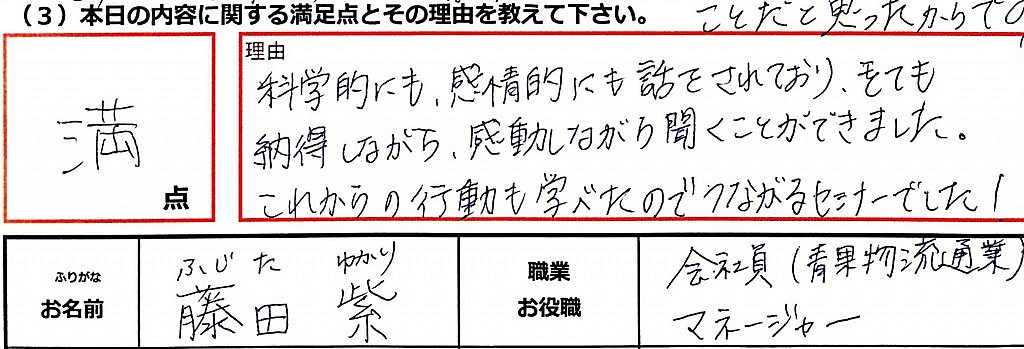 ことだと思ったからです
（3）本日の内容に関する満足点とその理由を教えて下さい。
満点
理由
科学的にも、感情的にも話をされており、とても
納得しながら、感動しながら聞くことができました。
これからの行動も学べたのでつながるセミナーでした!
ふりがな
お名前
ふじた ゆかり
藤田 紫
職業
お役職
会社員（青果物流通業）
マネージャー